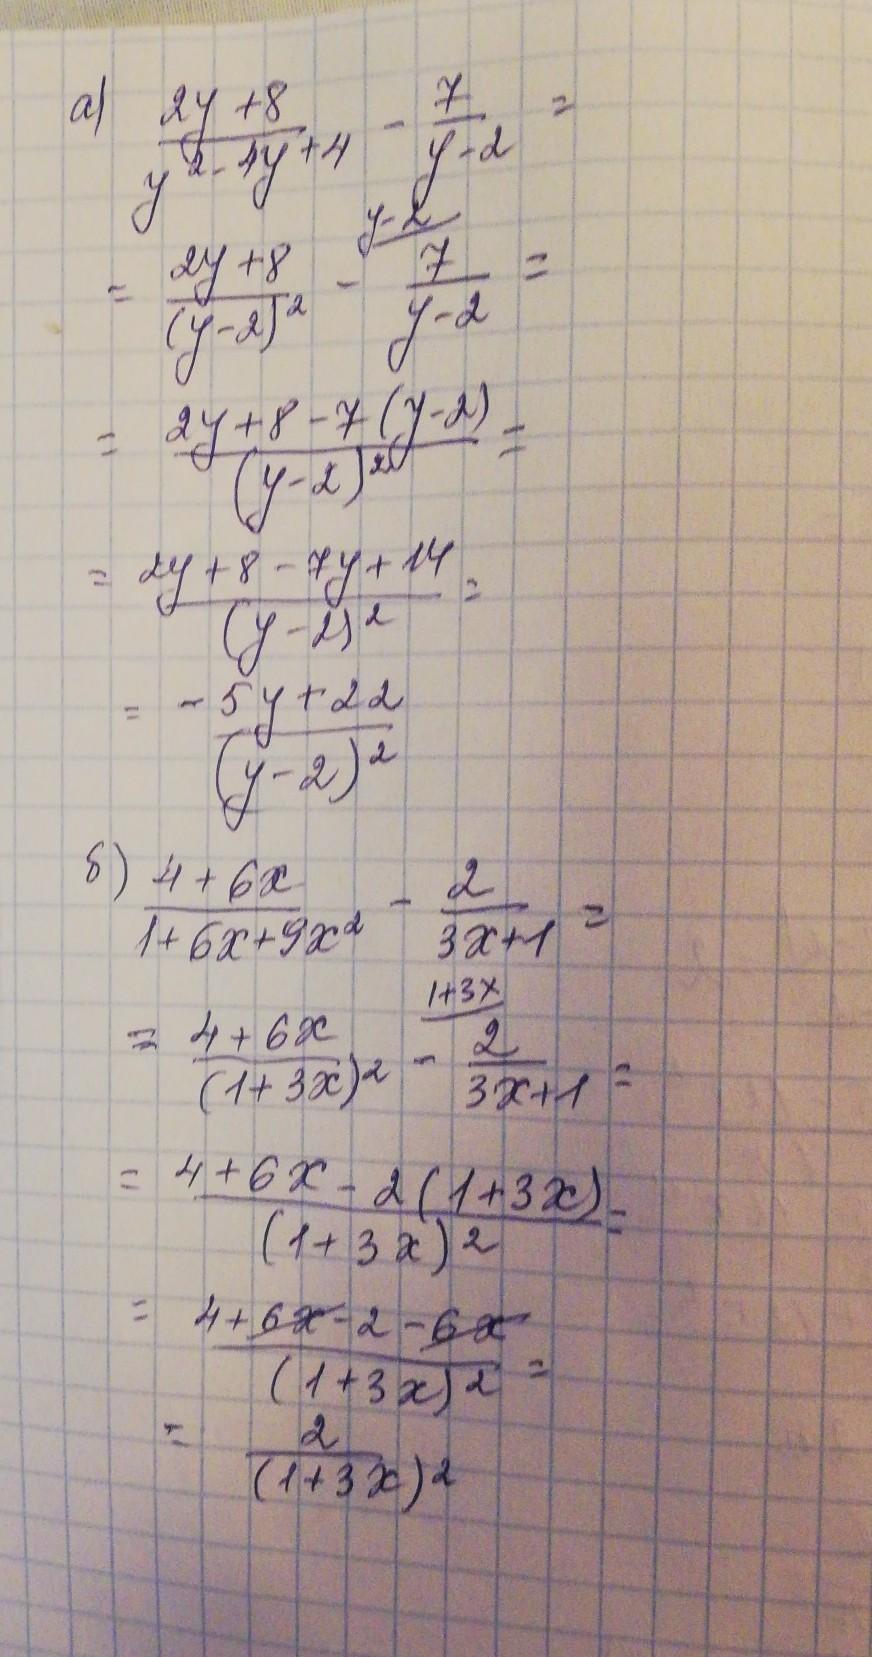 а) (2y+8)/(y²-4y+4) - 7/(y-2) =
= (2y+8)/(y-2)² - 7/(y-2) = (y-2
= (2y+8-7(y-2))/(y-2)² =
= (2y+8-7y+14)/(y-2)² =
= (-5y+22)/(y-2)²
б) (4+6x)/(1+6x+9x²) - 2/(3x+1) =
= (4+6x)/(1+3x)² - 2/(3x+1) = (1+3x
= (4+6x-2(1+3x))/(1+3x)² =
= (4+6x-2-6x)/(1+3x)² =
= 2/(1+3x)²